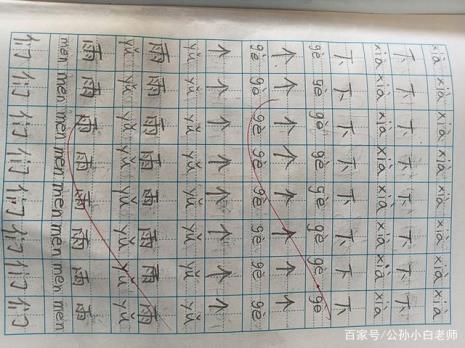 xià xià xià xià xià xià xià xià
下 下 下 下 下 下 下 下
xià xià xià xià xià xià xià xià
下 下 下 下 下 下 下 下
gè gè gè gè gè gè gè gè
个 个 个 个 个 个 个 个
gè gè gè gè gè gè gè gè
个 个 个 个 个 个 个 个
yǔ yǔ yǔ yǔ yǔ yǔ yǔ yǔ
雨 雨 雨 雨 雨 雨 雨 雨
yǔ yǔ yǔ yǔ yǔ yǔ yǔ yǔ
雨 雨 雨 雨 雨 雨 雨 雨
men men men men men men men men
们 们 们 们 们 们 们 们
百家号/公孙小白老师